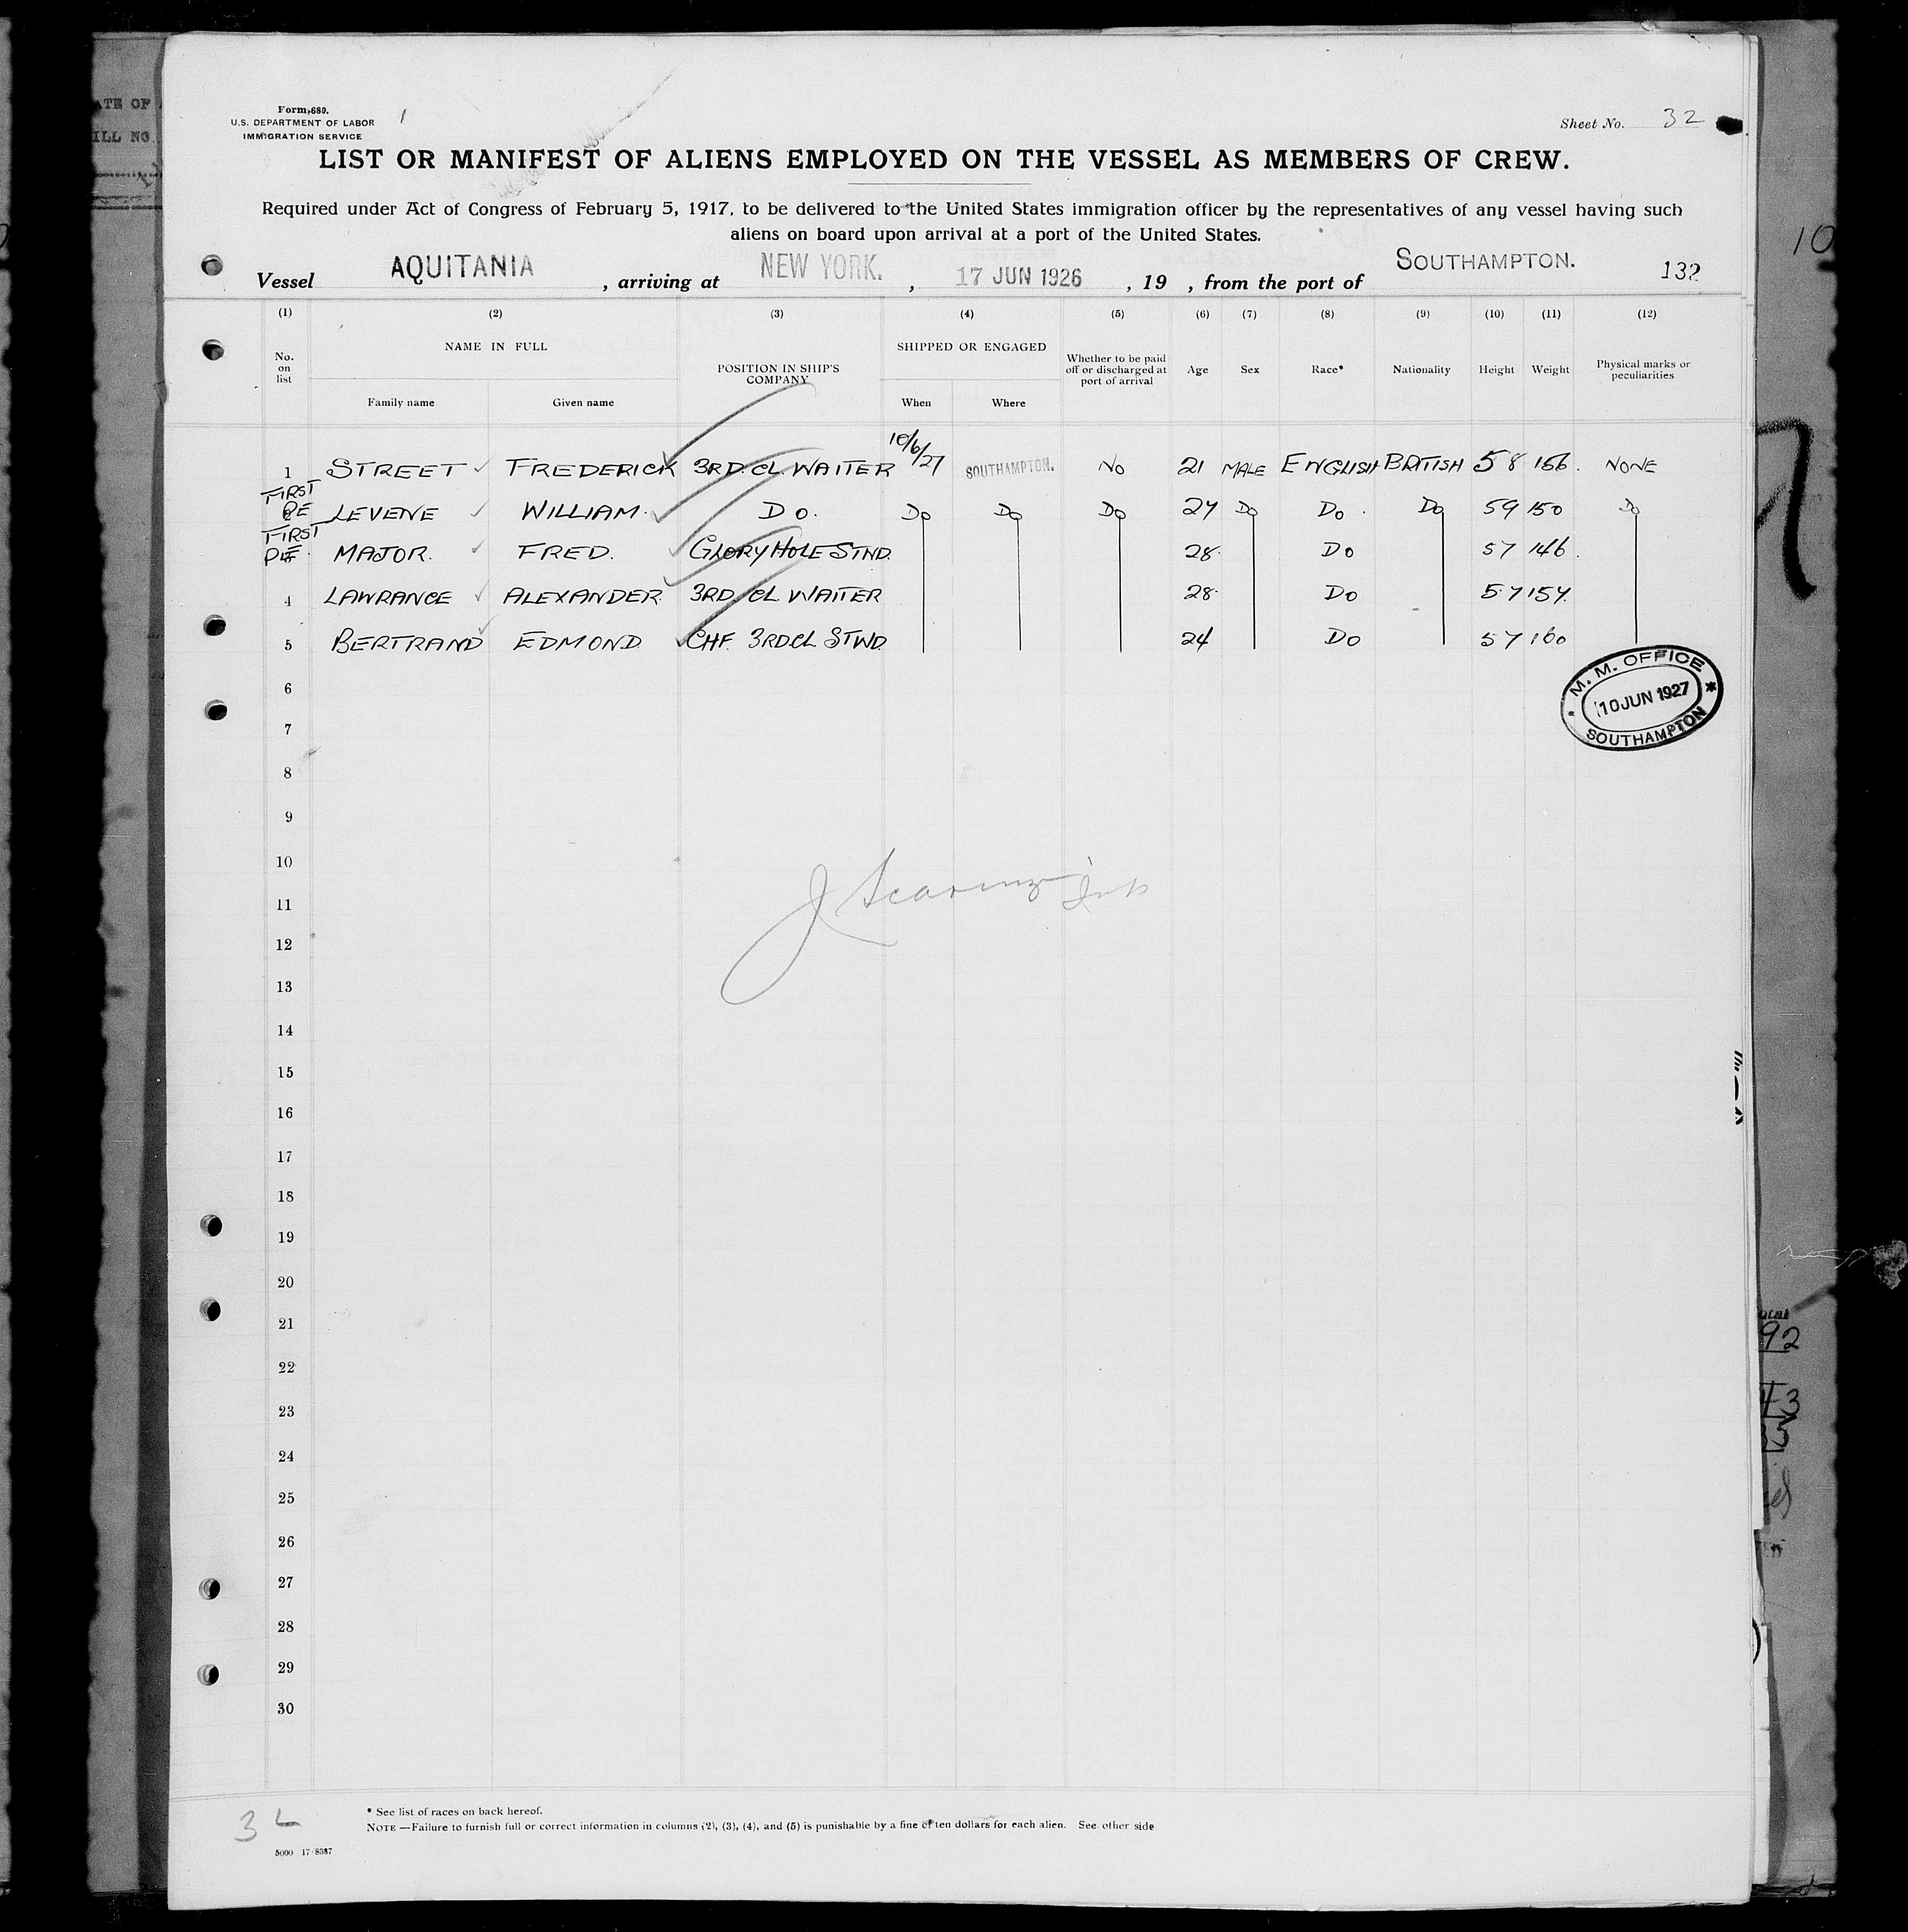 ATE OF
ILL NO
Form 680.
U.S. DEPARTMENT OF LABOR
IMMIGRATION SERVICE
1
Sheet No. 32
LIST OR MANIFEST OF ALIENS EMPLOYED ON THE VESSEL AS MEMBERS OF CREW.
Required under Act of Congress of February 5, 1917, to be delivered to the United States immigration officer by the representatives of any vessel having such
aliens on board upon arrival at a port of the United States.
10
Vessel AQUITANIA, arriving at NEW YORK., 17 JUN 1926, 19 , from the port of SOUTHAMPTON. 132
(1) (2) (3) (4) (5) (6) (7) (8) (9) (10) (11) (12)
No. on list NAME IN FULL POSITION IN SHIP'S COMPANY SHIPPED OR ENGAGED Whether to be paid off or discharged at port of arrival Age Sex Race* Nationality Height Weight Physical marks or peculiarities
Family name Given name When Where
1 STREET FREDERICK 3RD CL WAITER 10/6/27 SOUTHAMPTON. NO 21 MALE ENGLISH BRITISH 5 8 156. NONE
FIRST
LEVENE WILLIAM. DO. DO DO DO 27 DO DO. DO 59 150 DO
FIRST
MAJOR. FRED. GLORY HOLE STWD. 28. DO 57 146.
4 LAWRANCE ALEXANDER. 3RD CL. WAITER 28. DO 57 157.
5 BERTRAND EDMOND. CHF. 3RD CL STWD. 24 DO 57 160
M. M. OFFICE
10 JUN 1927
SOUTHAMPTON
6
7
8
9
10
11
12
13
14
15
16
17
18
19
20
21
22
23
24
25
26
27
28
29
30
otal
92
43
* See list of races on back hereof.
NOTE —Failure to furnish full or correct information in columns (2), (3), (4), and (5) is punishable by a fine of ten dollars for each alien. See other side
5000 17-8387